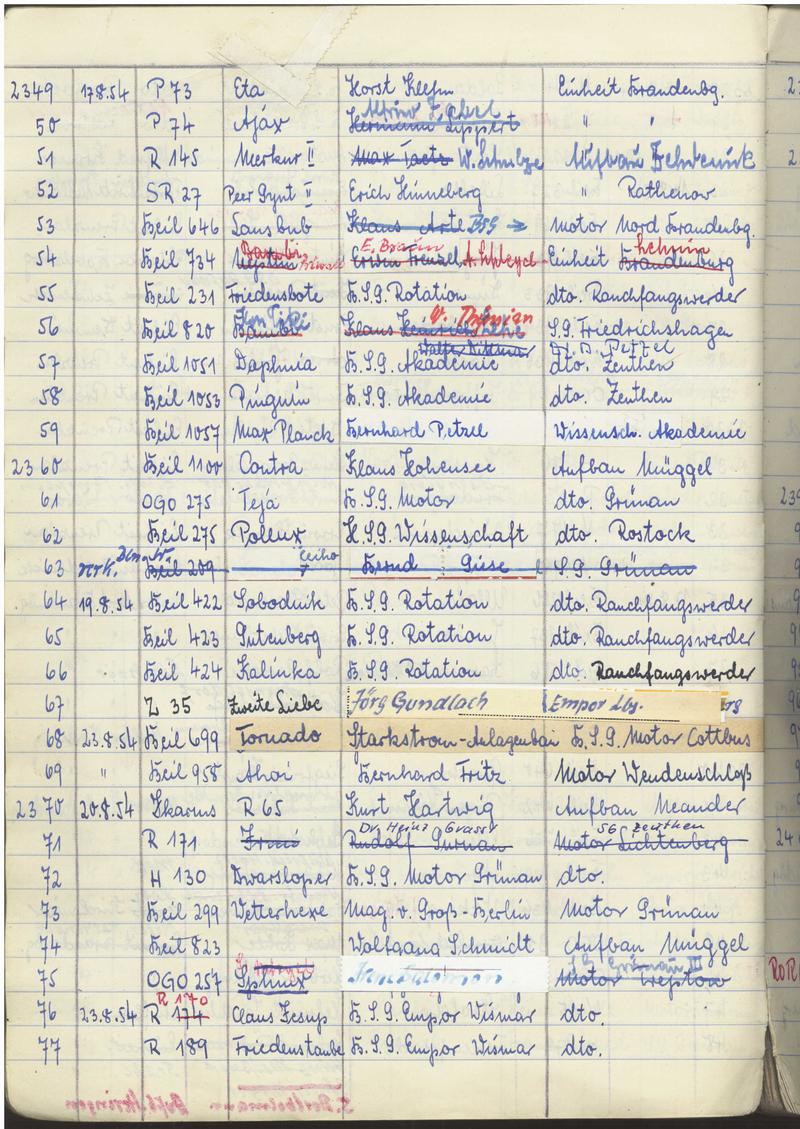 2349 17.8.54 P 73 Eta Horst Klehm Einheit Brandenbg.
50 P 74 Ajax Hermann Lippert " "
51 R 145 Merkur II Max W. Schulze Aufbau Zehdenick
52 SR 27 Peer Gynt II Erich Hünneberg " Rathenow
53 Beil 646 Lausbub Klaus Arlt Bbg → Motor Nord Brandenbg.
E. Braun Lehnin
54 Beil 734 Erwin Einheit Brandenburg
55 Beil 231 Friedensbote B.S.G. Rotation dto. Rauchfangswerder
56 Beil 820 Bambi Klaus S.G. Friedrichshagen
Walter Dittmar
57 Beil 1051 Daphnia B.S.G. Akademie dto. Zeuthen
58 Beil 1053 Pinguin B.S.G. Akademie dto. Zeuthen
59 Beil 1057 Max Planck Bernhard Petzel Wissensch. Akademie
2360 Beil 1100 Contra Klaus Hohensee Aufbau Müggel
61 OGO 275 Teja B.S.G. Motor dto. Grünau
62 Beil 275 Pollux H.S.G. Wissenschaft dto. Rostock
63 verk. Beil 289 Bernd Giese S.G. Grünau
64 19.8.54 Beil 422 Sobodnik B.S.G. Rotation dto. Rauchfangswerder
65 Beil 423 Gutenberg B.S.G. Rotation dto. Rauchfangswerder
66 Beil 424 Kalinka B.S.G. Rotation dto. Rauchfangswerder
67 Z 35 Zweite Liebe Jörg Gundlach Empor Lbg.
68 23.8.54 Beil 699 Tornado Starkstrom-Anlagenbau B.S.G. Motor Cottbus
69 " Beil 958 Ahoi Bernhard Fritz Motor Wendenschloß
2370 20.8.54 Ikarus R 65 Kurt Hartwig Aufbau Meander
Dr. Heinz Grasse SG Zeuthen
71 R 171 Rudolf Motor Lichtenberg
72 H 130 Dwarsloper B.S.G. Motor Grünau dto.
73 Beil 299 Wetterhexe Mag. v. Groß-Berlin Motor Grünau
74 Beil 823 Wolfgang Schmidt Aufbau Müggel
75 OGO 257 Sphinx Motor Treptow
R 170
76 23.8.54 R 174 Claus Jesup B.S.G. Empor Wismar dto.
77 R 189 Friedenstaube B.S.G. Empor Wismar dto.